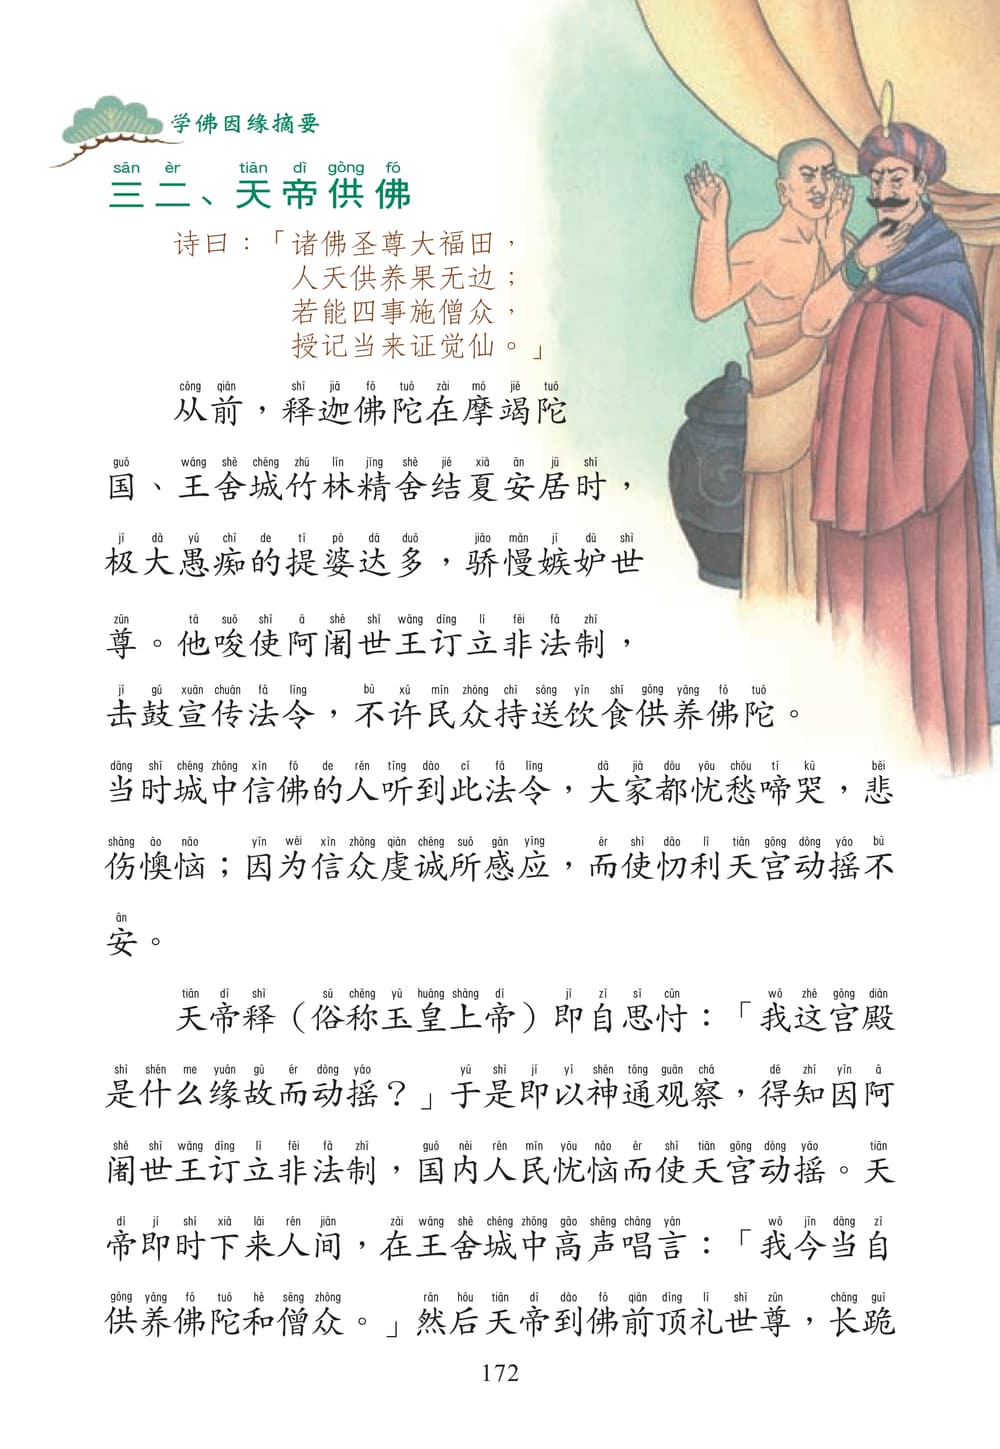 学佛因缘摘要
sān èr tiān dì gòng fó
三二、天帝供佛
诗曰：「诸佛圣尊大福田，
人天供养果无边；
若能四事施僧众，
授记当来证觉仙。」
cóng qián shì jiā fó tuó zài mó jié tuó
从前，释迦佛陀在摩竭陀
guó wáng shè chéng zhú lín jīng shè jié xià ān jū shí
国、王舍城竹林精舍结夏安居时，
jí dà yú chī de tí pó dá duō jiāo màn jí dù shì
极大愚痴的提婆达多，骄慢嫉妒世
zūn tā suō shǐ ā shé shì wáng dìng lì fēi fǎ zhì
尊。他唆使阿阇世王订立非法制，
jí gǔ xuān chuán fǎ lìng bù xǔ mín zhòng chí sòng yǐn shí gòng yǎng fó tuó
击鼓宣传法令，不许民众持送饮食供养佛陀。
dāng shí chéng zhōng xìn fó de rén tīng dào cǐ fǎ lìng dà jiā dōu yōu chóu tí kū bēi
当时城中信佛的人听到此法令，大家都忧愁啼哭，悲
shāng ào nǎo yīn wèi xìn zhòng qián chéng suǒ gǎn yìng ér shǐ dāo lì tiān gōng dòng yáo bù
伤懊恼；因为信众虔诚所感应，而使忉利天宫动摇不
ān
安。
tiān dì shì sú chēng yù huáng shàng dì jí zì sī cǔn wǒ zhè gōng diàn
天帝释（俗称玉皇上帝）即自思忖：「我这宫殿
shì shén me yuán gù ér dòng yáo yú shì jí yǐ shén tōng guān chá dé zhī yīn ā
是什么缘故而动摇？」于是即以神通观察，得知因阿
shé shì wáng dìng lì fēi fǎ zhì guó nèi rén mín yōu nǎo ér shǐ tiān gōng dòng yáo tiān
阇世王订立非法制，国内人民忧恼而使天宫动摇。天
dì jí shí xià lái rén jiān zài wáng shè chéng zhōng gāo shēng chàng yán wǒ jīn dāng zì
帝即时下来人间，在王舍城中高声唱言：「我今当自
gòng yǎng fó tuó hé sēng zhòng rán hòu tiān dì dào fó qián dǐng lǐ shì zūn cháng guì
供养佛陀和僧众。」然后天帝到佛前顶礼世尊，长跪
172